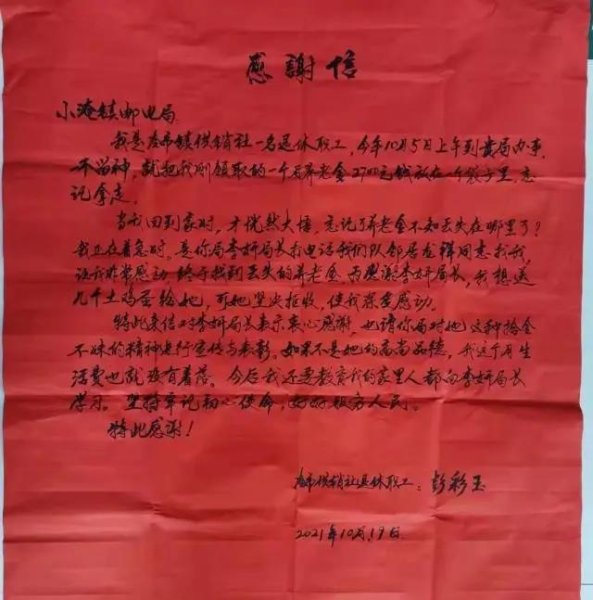 感謝信
小淹镇邮电局
我是唐市镇供销社一名退休职工，今年10月5日上午到贵局办事，
不留神，就把我刚领取的一个月养老金2700元钱放在一个袋子里，忘
记拿走。
当我回到家时，才恍然大悟，忘记了养老金不知丢失在哪里了？
我正在着急时，是你局李妍局长打电话我们队邻居龙祥同志找我，
让我非常感动，终于找到丢失的养老金，为感谢李妍局长，我想送
几千土鸡蛋给她，可她坚决拒收，使我深受感动。
特此来信对李妍局长表示衷心感谢，也请你局对她这种拾金
不昧的精神进行宣传与表彰。如果不是她的高尚品德，我这个月生
活费也就没有着落。今后我还要教育我的家里人都向李妍局长
学习。坚持牢记初心使命，好好服务人民。
特此感谢！
供销社退休职工：彭彩玉
2021年10月19日